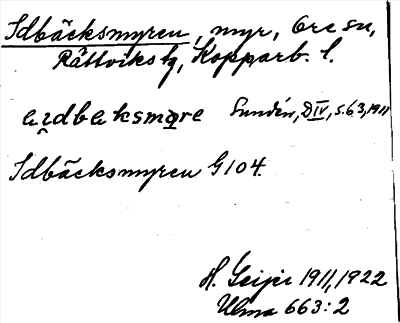 Idbäcksmyren, myr, Ore sn,
Rättviks tg, Kopparb. l.
Sundén, D IV, s. 63, 1911
Idbäcksmyren G 104.
H. Geijer 1911, 1922
Ulma 663:2